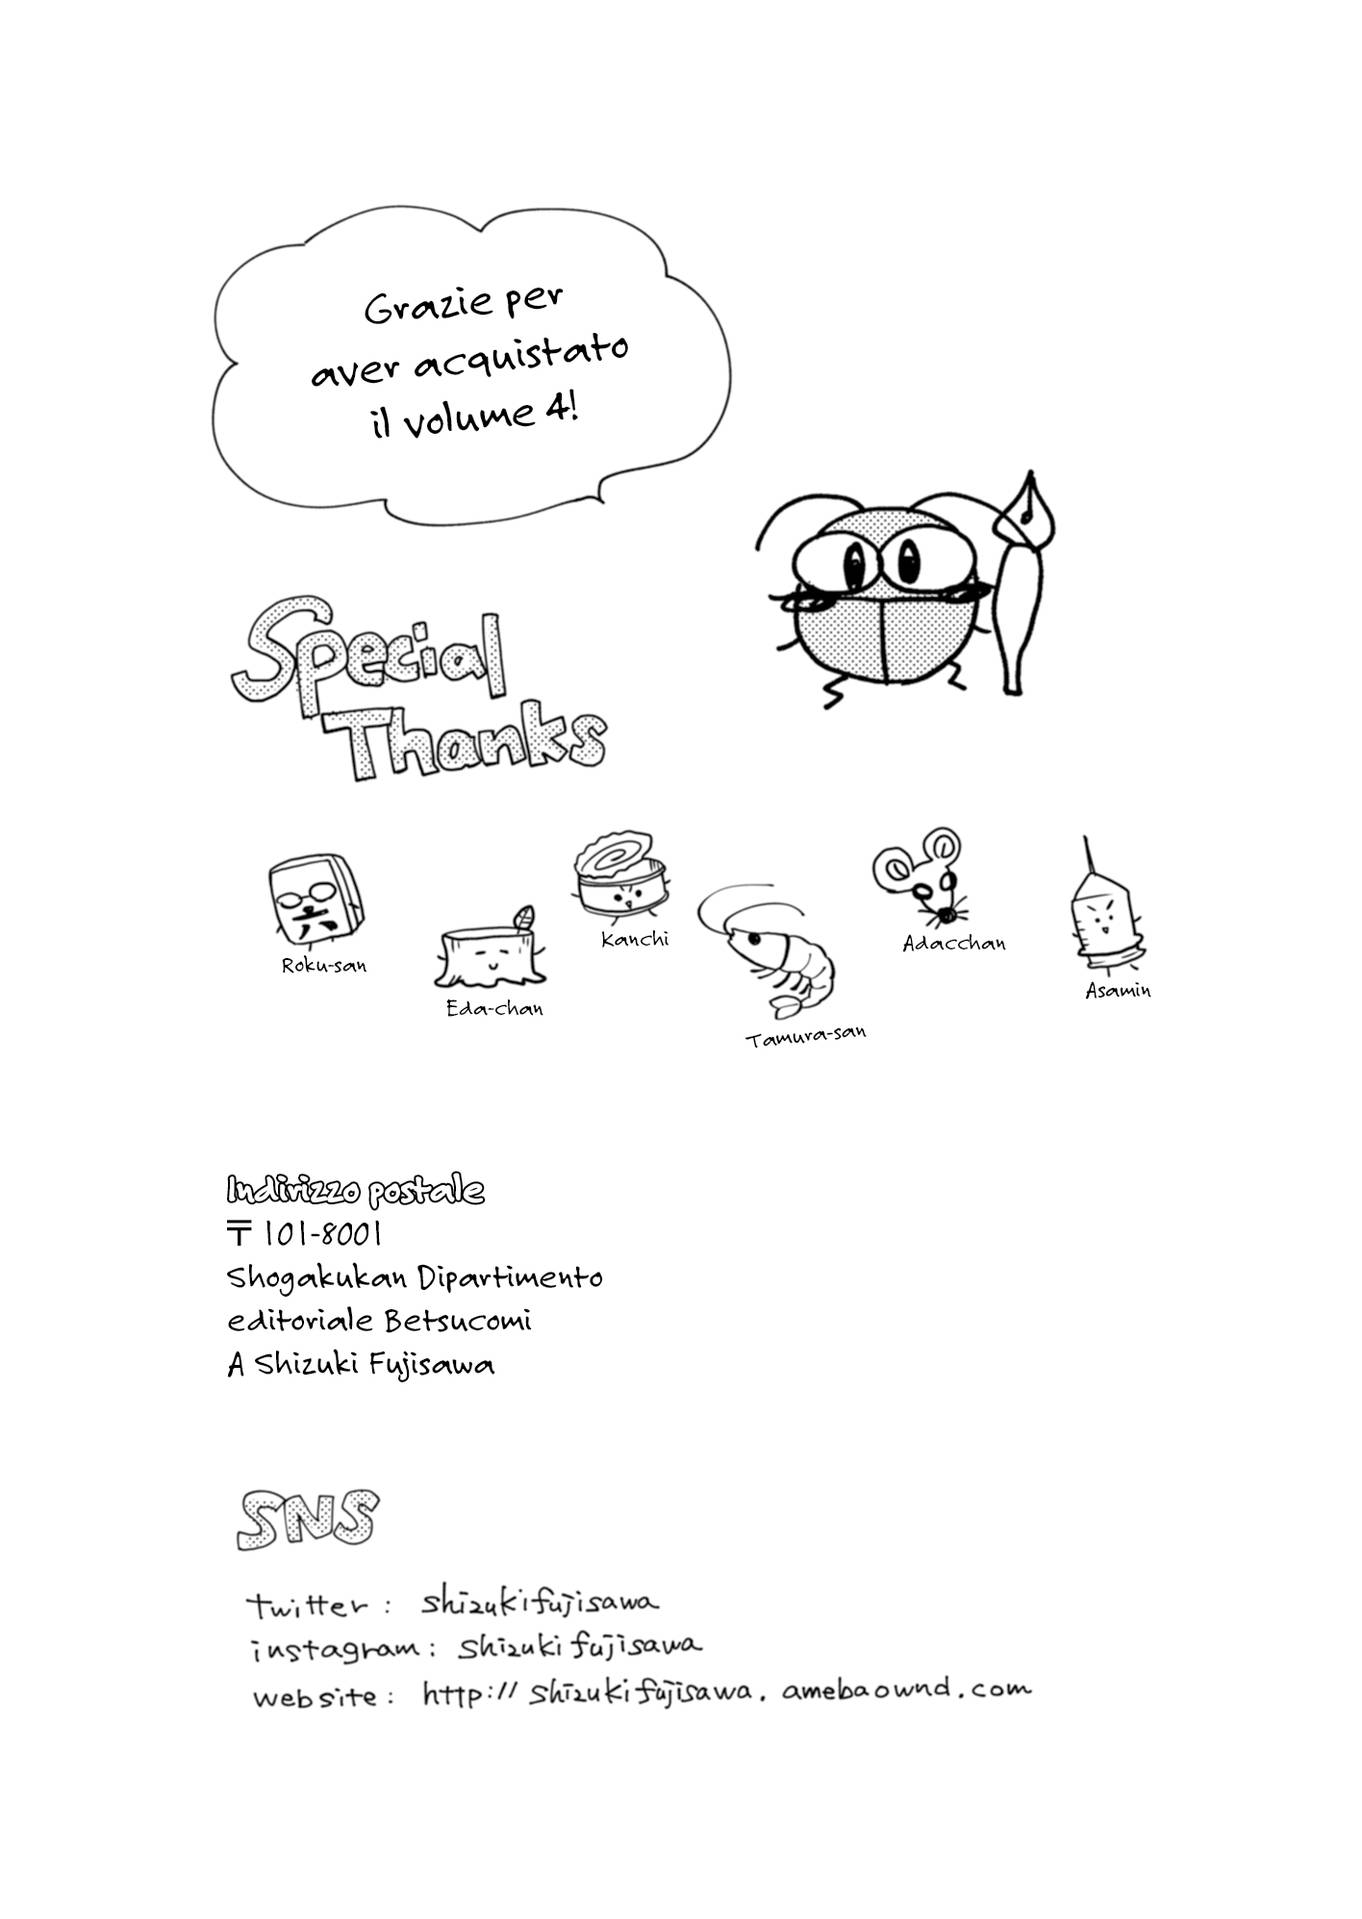 Grazie per
aver acquistato
il volume 4!
Special
Thanks
六
Roku-san
Eda-chan
Kanchi
Tamura-san
Adacchan
Asamin
Indirizzo postale
〒101-8001
Shogakukan Dipartimento
editoriale Betsucomi
A Shizuki Fujisawa
SNS
twitter: shizukifujisawa
instagram: shizukifujisawa
website: http://shizukifujisawa.amebaownd.com